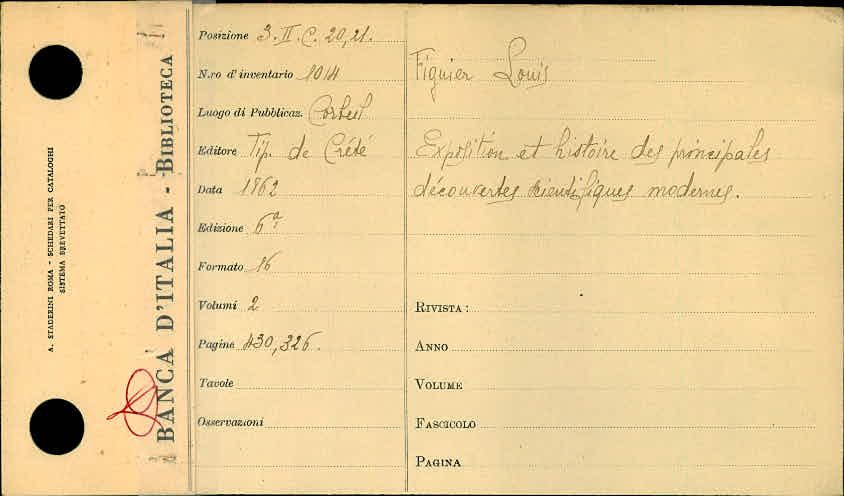 A. STADERINI ROMA - SCHEDARI PER CATALOGHI
SISTEMA BREVETTATO
BANCA D'ITALIA - BIBLIOTECA
Posizione 3. II. C. 20, 21.
N.ro d'inventario 1014
Luogo di Pubblicaz. Corbeil
Editore Tip. de Crété
Data 1862
Edizione 6a
Formato 16
Volumi 2
Pagine 430, 326.
Tavole
Osservazioni
Figuier Louis
Exposition et histoire des principales
découvertes scientifiques modernes.
RIVISTA:
ANNO
VOLUME
FASCICOLO
PAGINA